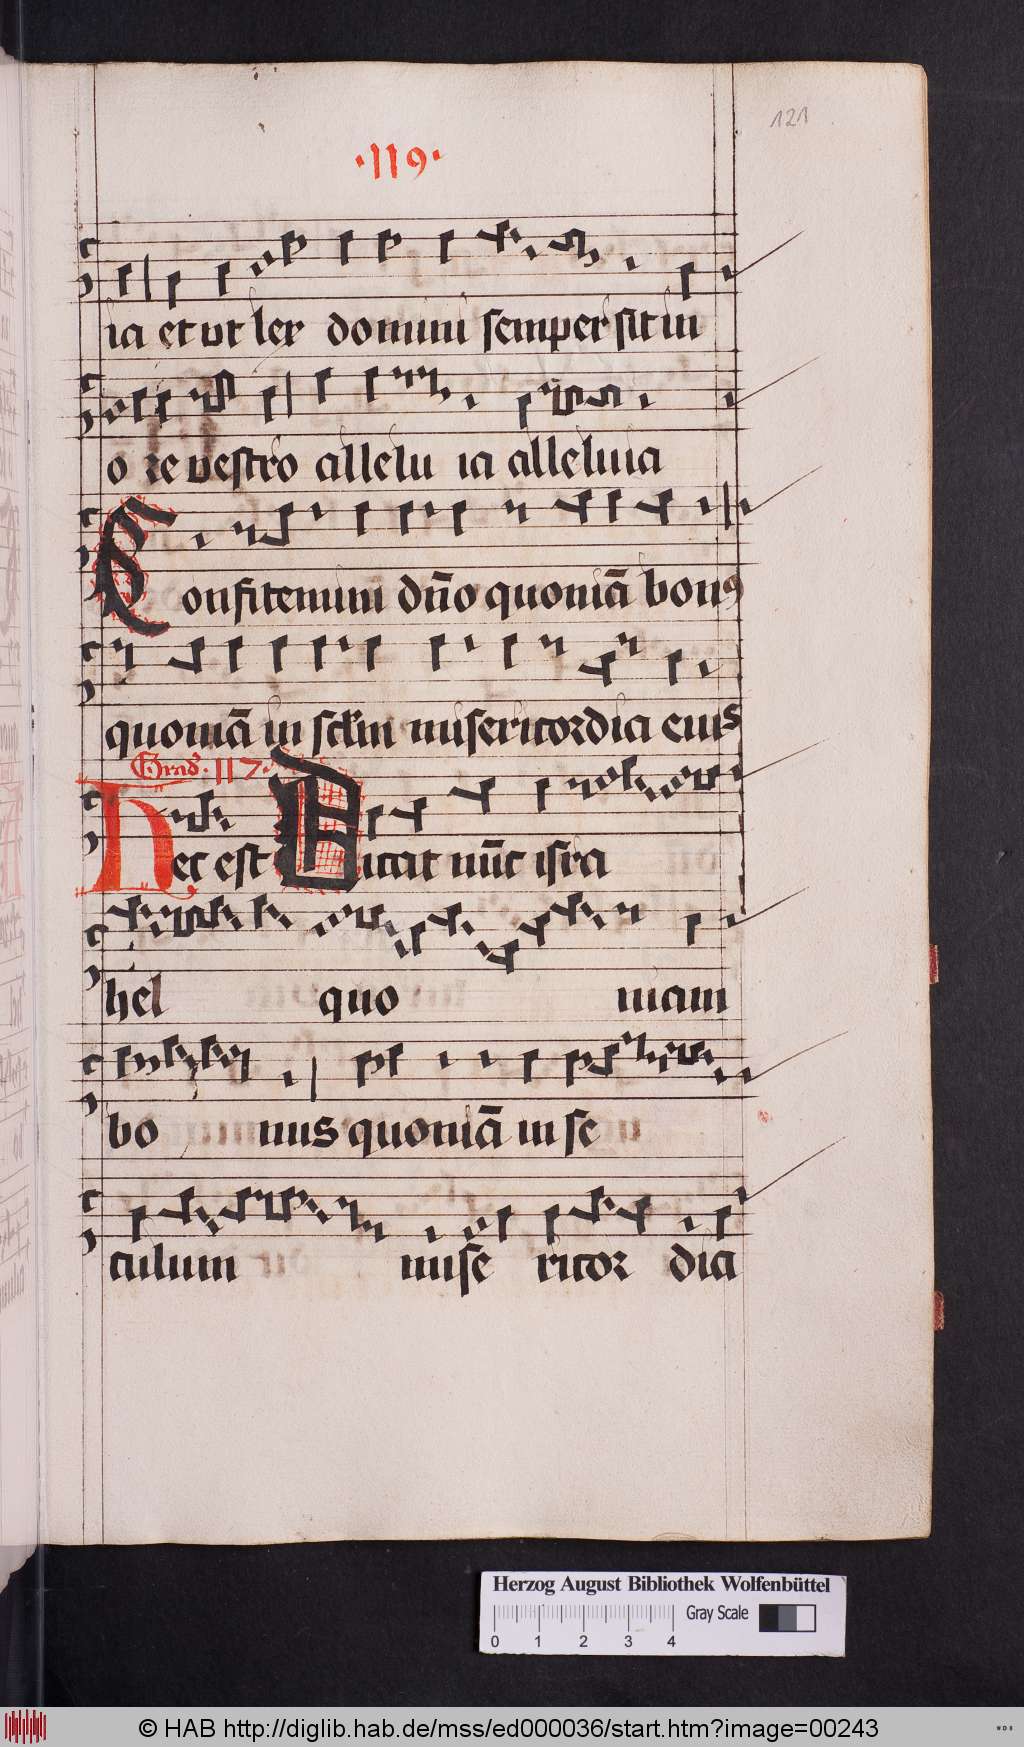 121
·119·
ia et ut lex domini semper sit in
o re vestro allelu ia alleluia
Confitemini dño quoniā bonꝰ
quoniā in sclm misericordia eius
Grad. 117.
Hec est Dicat nūc isra
hel quo niam
bo nus quoniā in se
culum mise ricor dia
Herzog August Bibliothek Wolfenbüttel
Gray Scale
0 1 2 3 4
© HAB http://diglib.hab.de/mss/ed000036/start.htm?image=00243